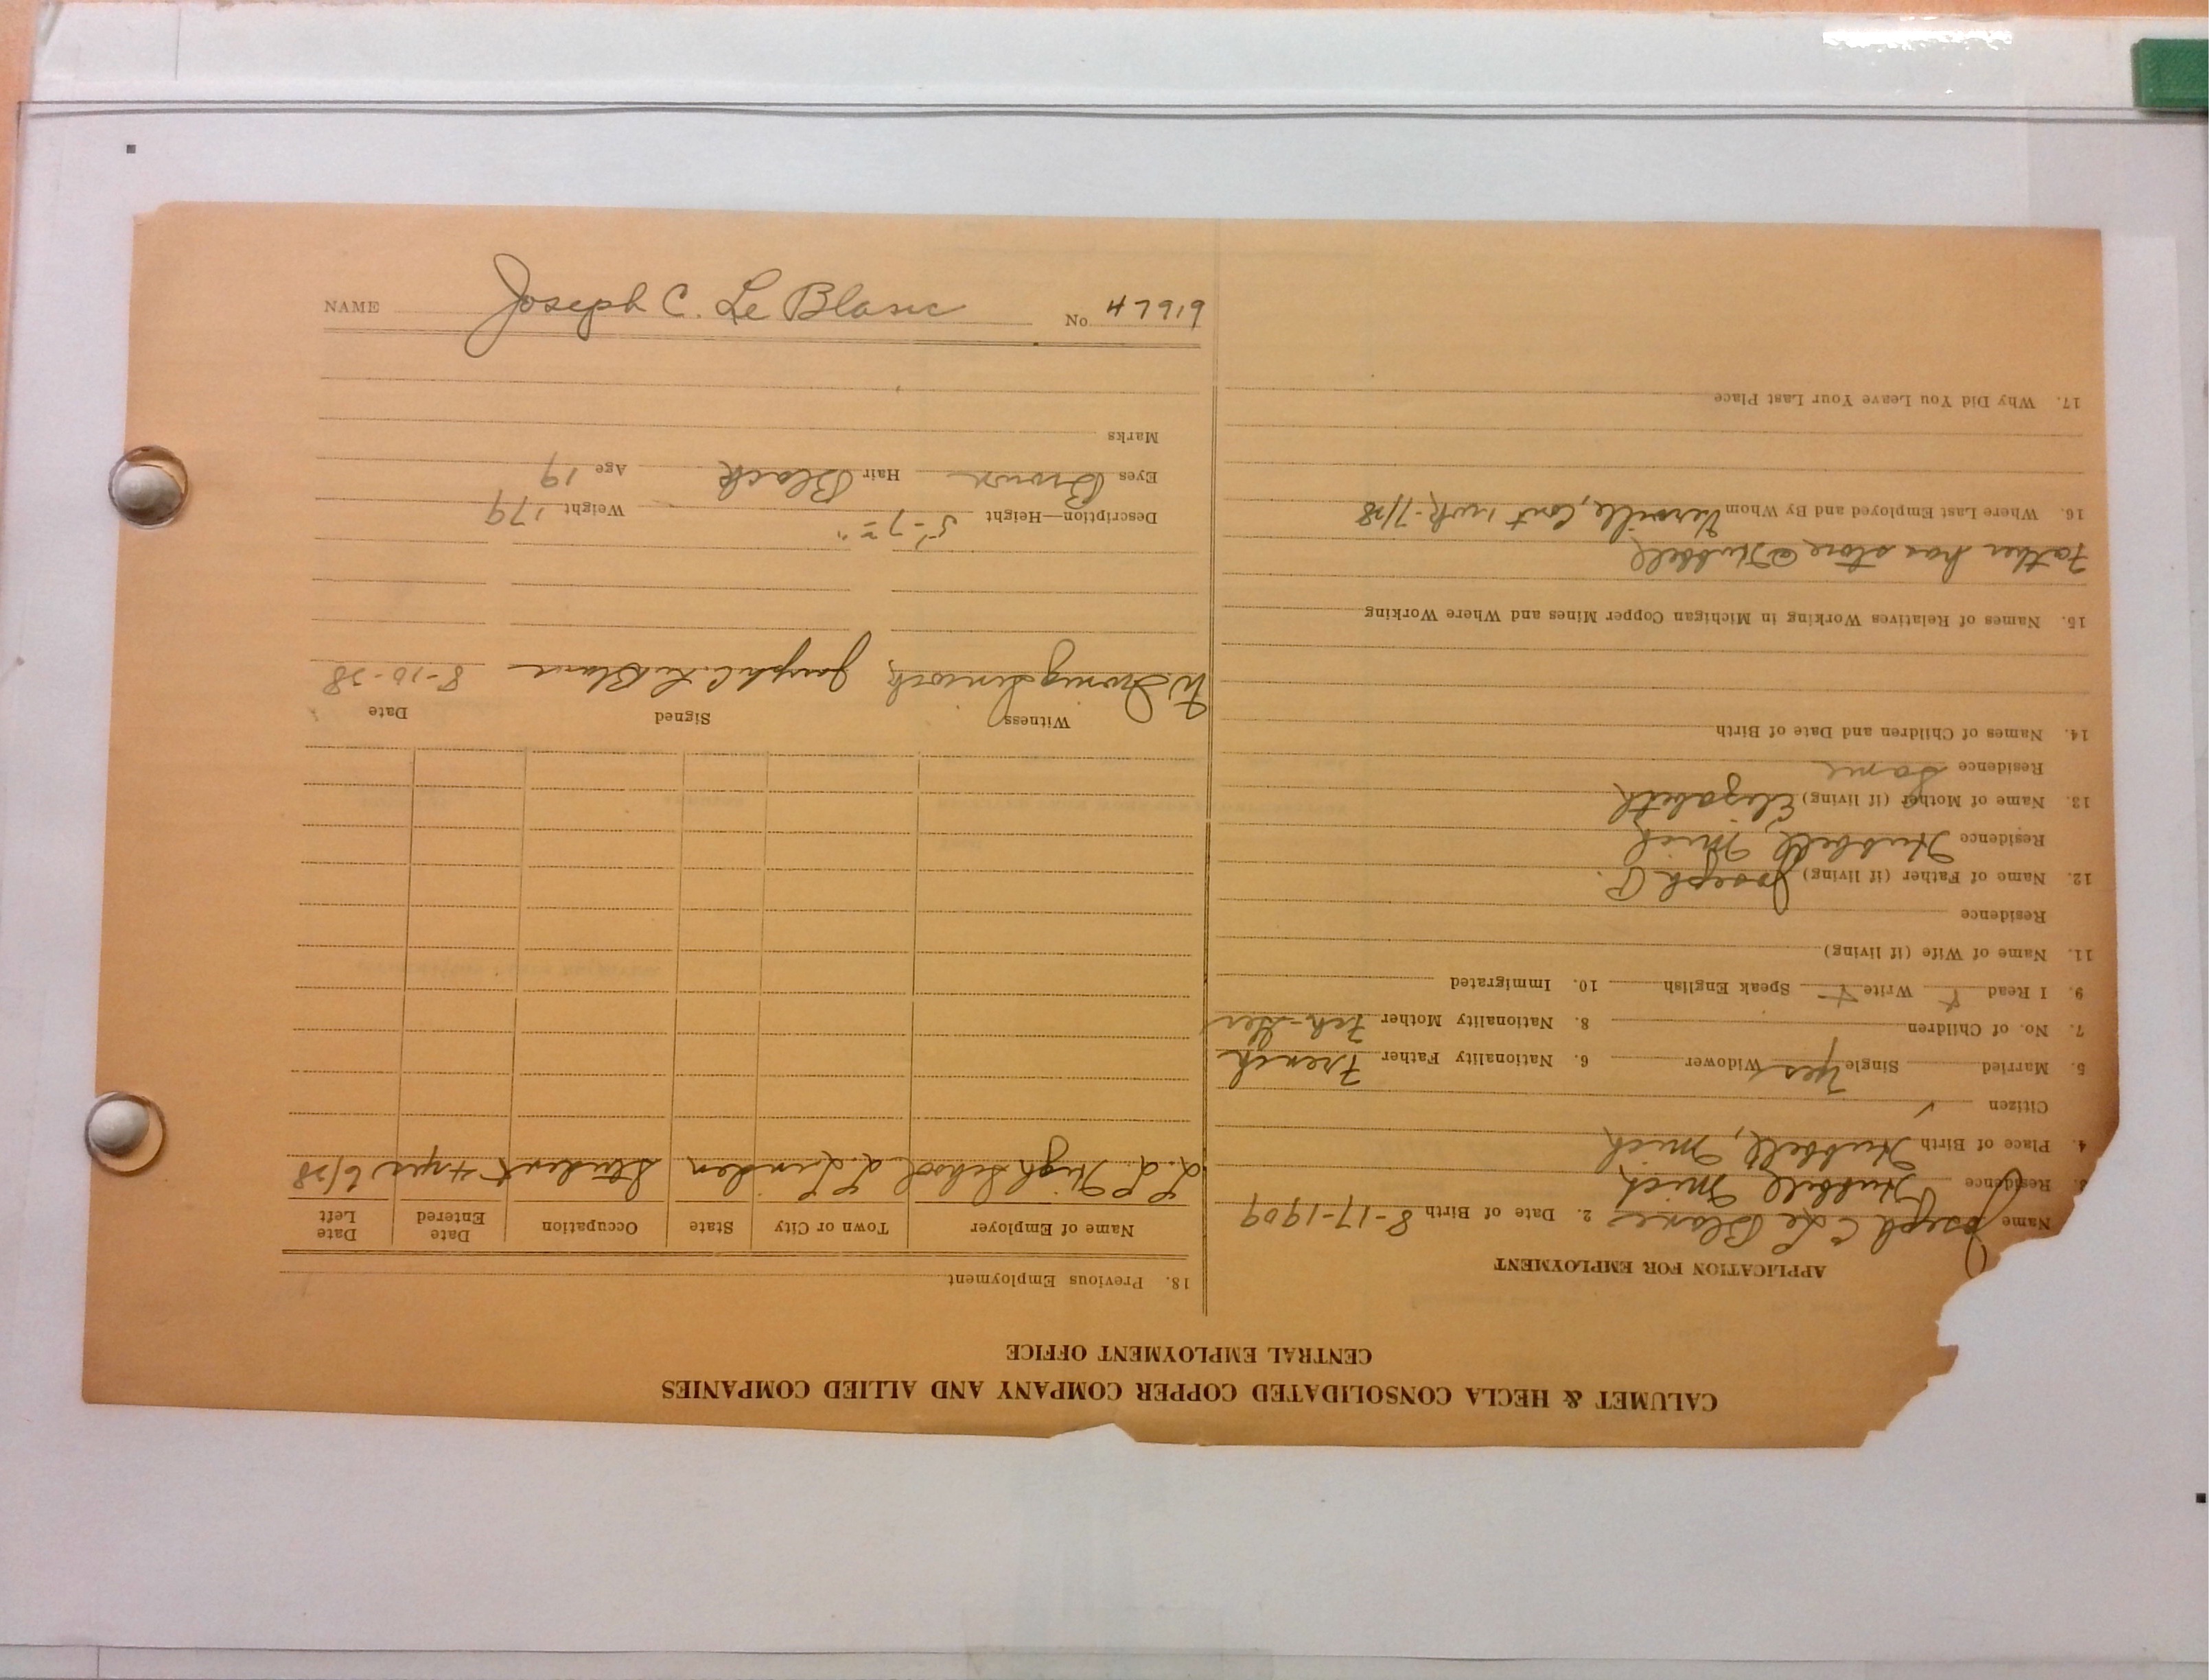 NAME Joseph C. Le Blanc No. 47919
CALUMET & HECLA CONSOLIDATED COPPER COMPANY AND ALLIED COMPANIES
CENTRAL EMPLOYMENT OFFICE
APPLICATION FOR EMPLOYMENT
Name Joseph C Le Blanc 2. Date of Birth 8-17-1909
Residence Hubbell Mich
4. Place of Birth Hubbell, Mich
Citizen ✓
5. Married Single Yes Widower 6. Nationality Father French
7. No. of Children 8. Nationality Mother Fch-Ger
9. I Read + Write + Speak English 10. Immigrated
11. Name of Wife (if living)
Residence
12. Name of Father (if living) Joseph P.
Residence Hubbell Mich
13. Name of Mother (if living) Elizabeth
Residence Same
14. Names of Children and Date of Birth
15. Names of Relatives Working in Michigan Copper Mines and Where Working
Father has store @ Hubbell
16. Where Last Employed and By Whom Cont 1 wk-7/28
17. Why Did You Leave Your Last Place
18. Previous Employment
Name of Employer Town or City State Occupation Date Entered Date Left
L.L. High School L. Linden Student 4 yrs 6/28
Witness Signed Date
Joseph C. Le Blanc 8-10-28
Description—Height 5'-7" Weight 179
Eyes Brown Hair Black Age 19
Marks